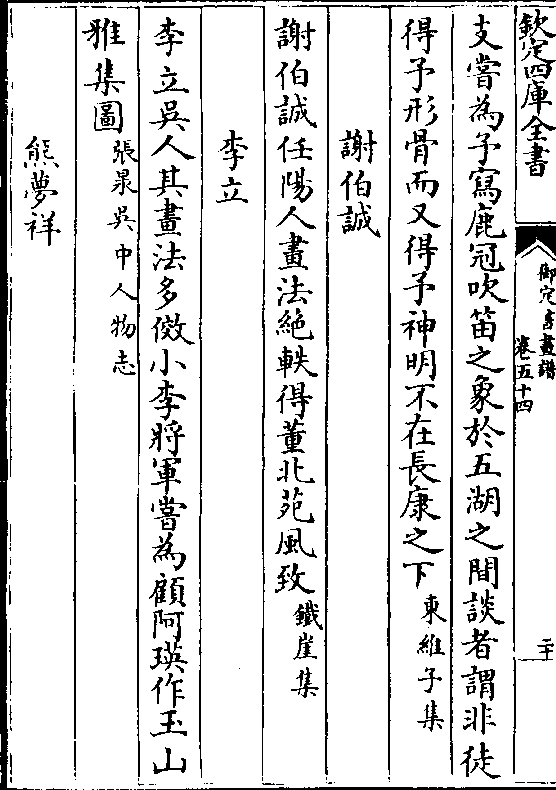 欽定四庫全書
御定書畫譜
卷五十四
二十
支嘗為予寫鹿冠吹笛之象於五湖之間談者謂非徒
得予形骨而又得予神明不在長康之下東維子集
謝伯誠
謝伯誠任陽人畫法絶軼得董北苑風致鐵崖集
李立
李立吳人其畫法多倣小李將軍嘗為顧阿瑛作玉山
雅集圖張泉吳中人物志
熊夢祥